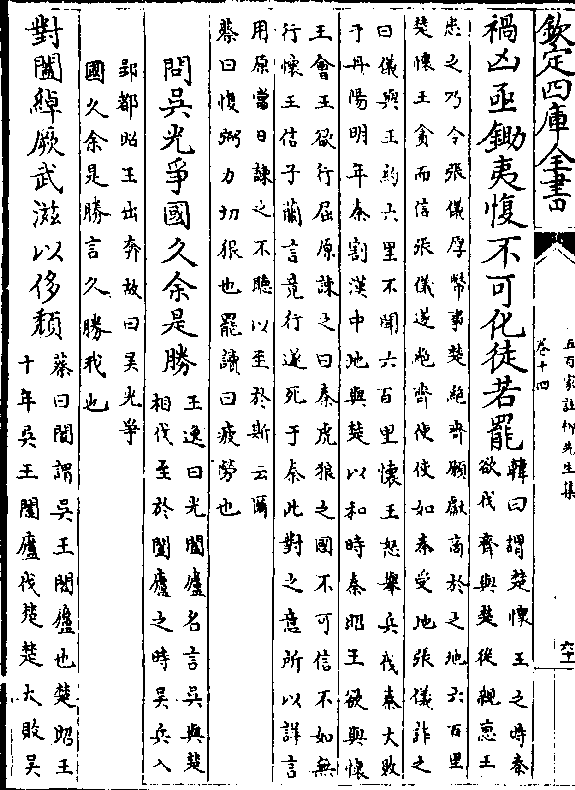 欽定四庫全書
五百家註柳先生集
卷十四
六十一
禍凶亟鋤夷愎不可化徒若罷
韓曰謂楚懷王之時秦
欲伐齊與楚從親惠王
患之乃令張儀厚幣事楚絕齊願獻商於之地六百里
楚懷王貪而信張儀遂絕齊使使如秦受地張儀詐之
曰儀與王約六里不聞六百里懷王怒舉兵伐秦大敗
于丹陽明年秦割漢中地與楚以和時秦昭王欲與懷
王會王欲行屈原諫之曰秦虎狼之國不可信不如無
行懷王信子蘭言竟行遂死于秦此對之意所以詳言
用原當日諫之不聽以至於斯云爾
蔡曰愎弼力切狠也罷讀曰疲勞也
問吳光爭國久余是勝
王逸曰光闔廬名言吳與楚
相伐至於闔廬之時吳兵入
郢都昭王出奔故曰吳光爭
國久余是勝言久勝我也
對闔綽厥武滋以侈頹
蔡曰闔謂吳王闔廬也楚昭王
十年吳王闔廬伐楚楚大敗吳